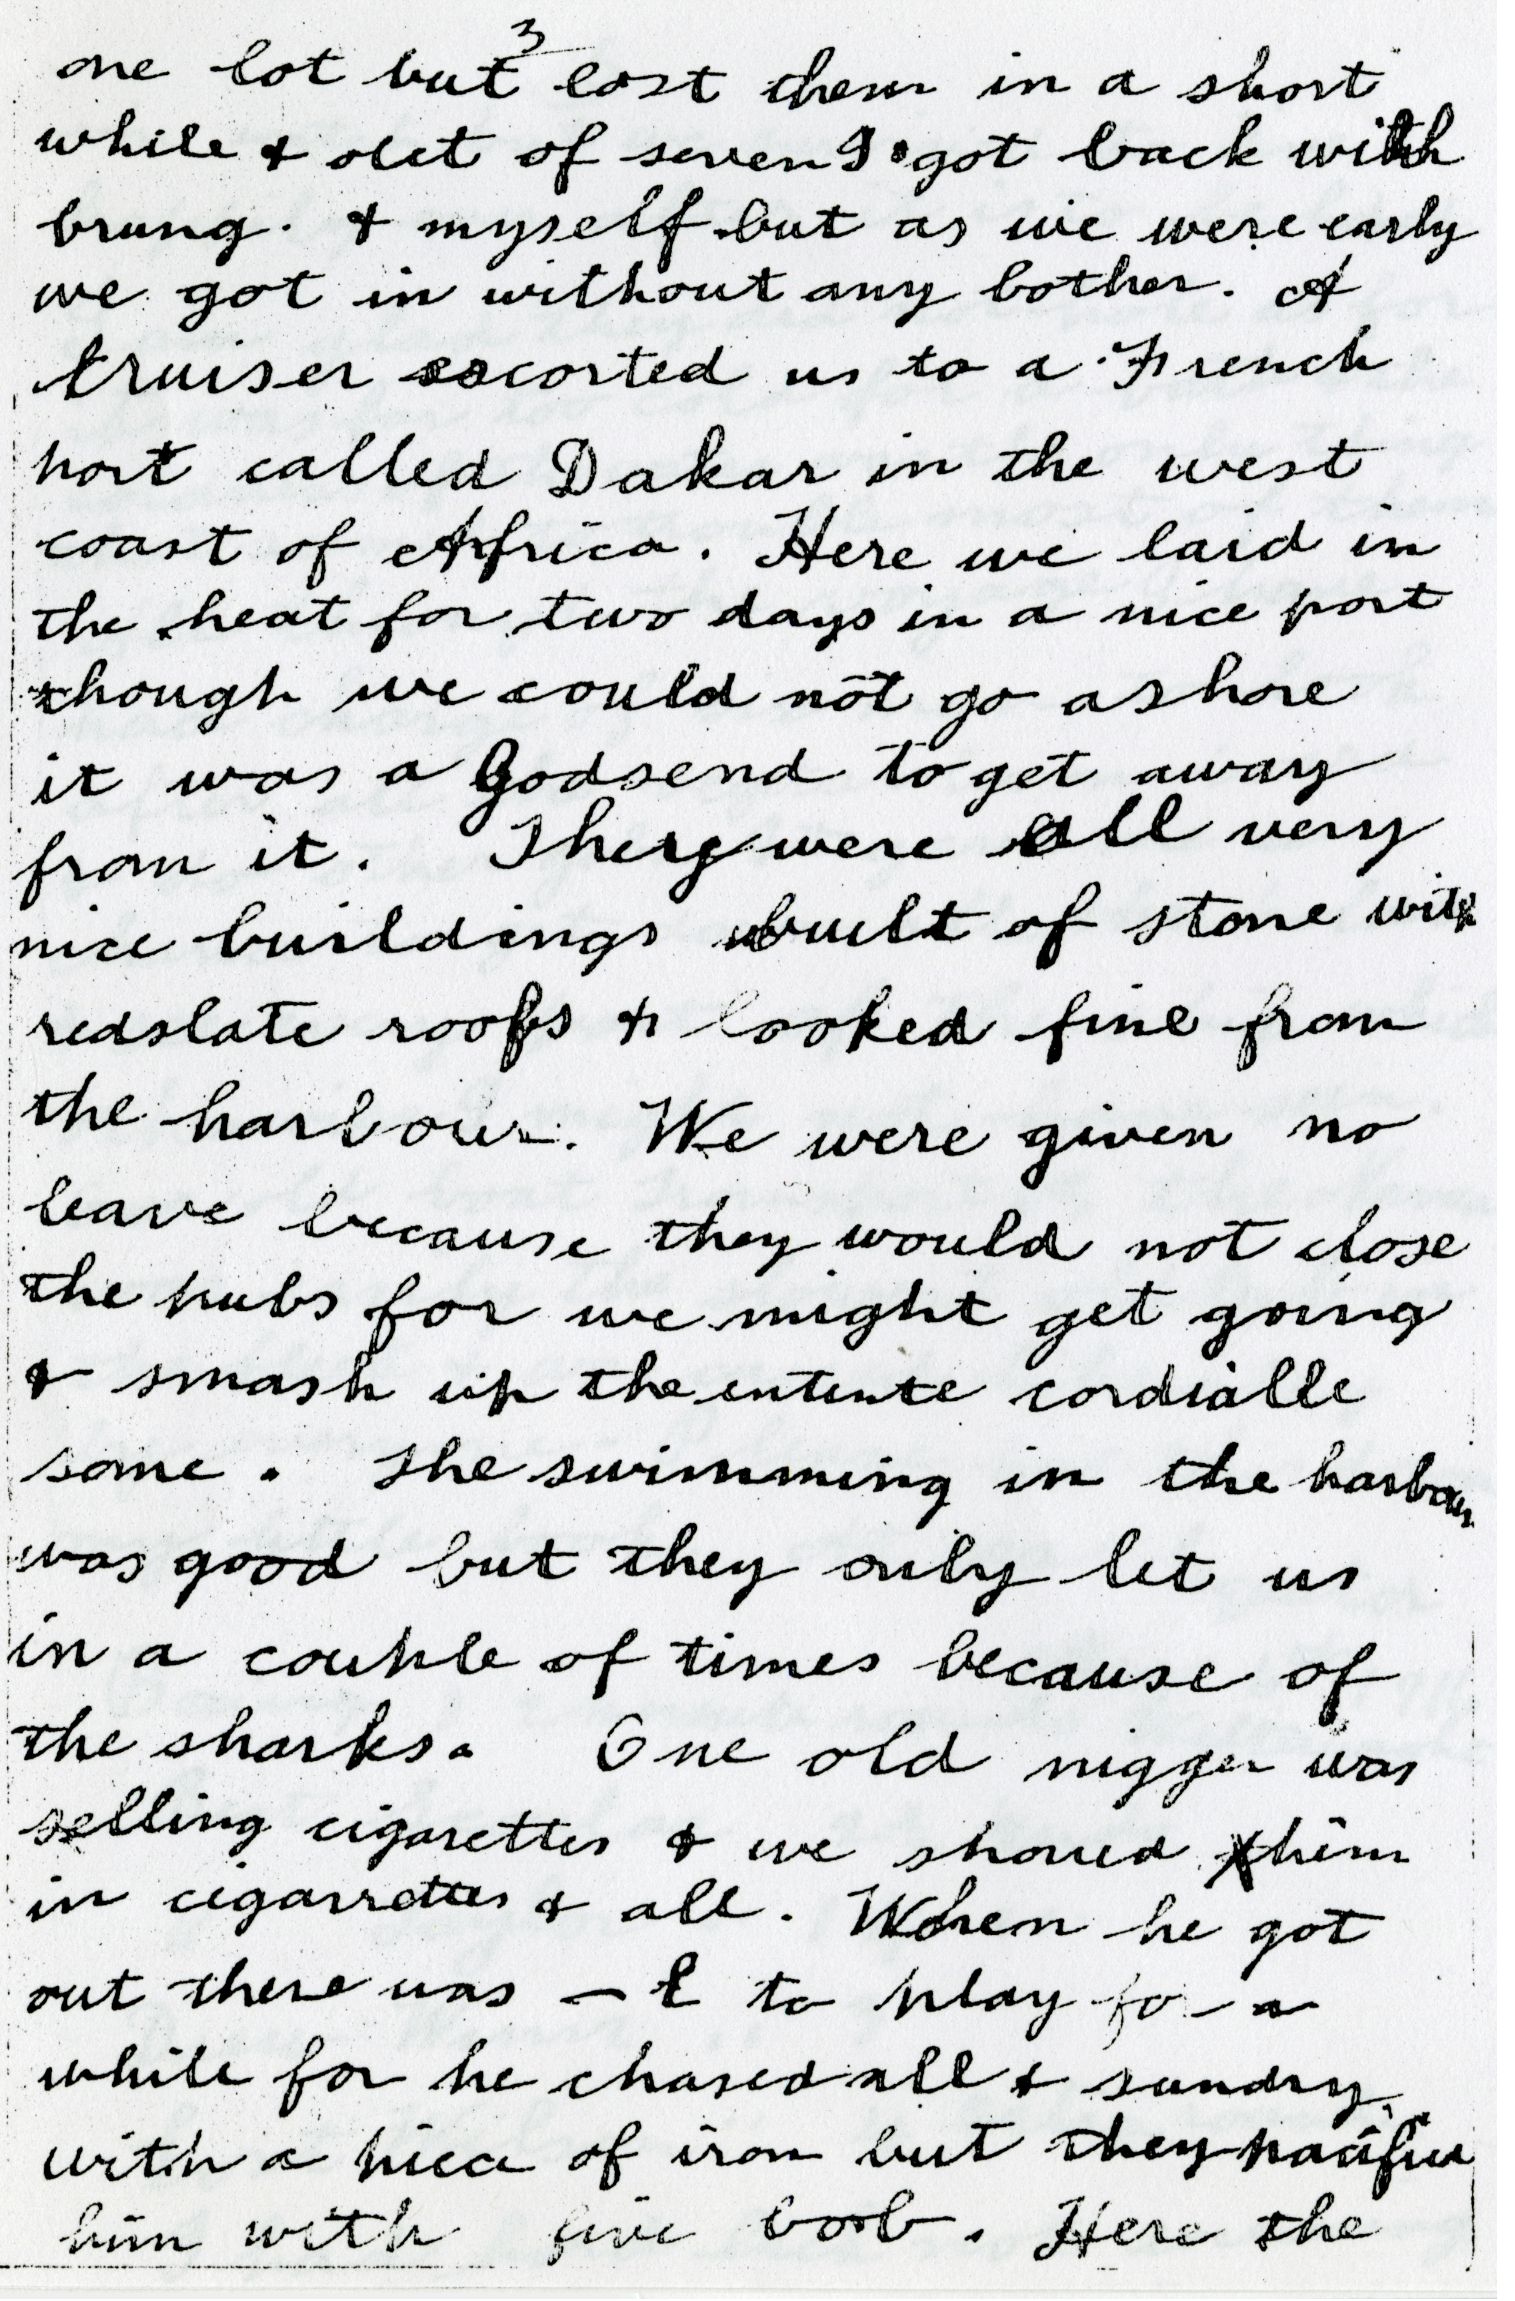 3
one lot but lost them in a short
while & out of seven I got back with
brung. & myself but as we were early
we got in without any bother. A
cruiser escorted us to a French
port called Dakar in the west
coast of Africa. Here we laid in
the heat for two days in a nice port
though we could not go ashore
it was a Godsend to get away
from it. They were all very
nice buildings built of stone with
redslate roofs & looked fine from
the harbour. We were given no
leave because they would not close
the pubs for we might get going
& smash up the entente cordialle
some. The swimming in the harbour
was good but they only let us
in a couple of times because of
the sharks. One old nigger was
selling cigarettes & we shoved him
in cigarrettes & all. When he got
out there was — l to play for a
while for he chased all & sundry
with a piece of iron but they pacified
him with five bob. Here the